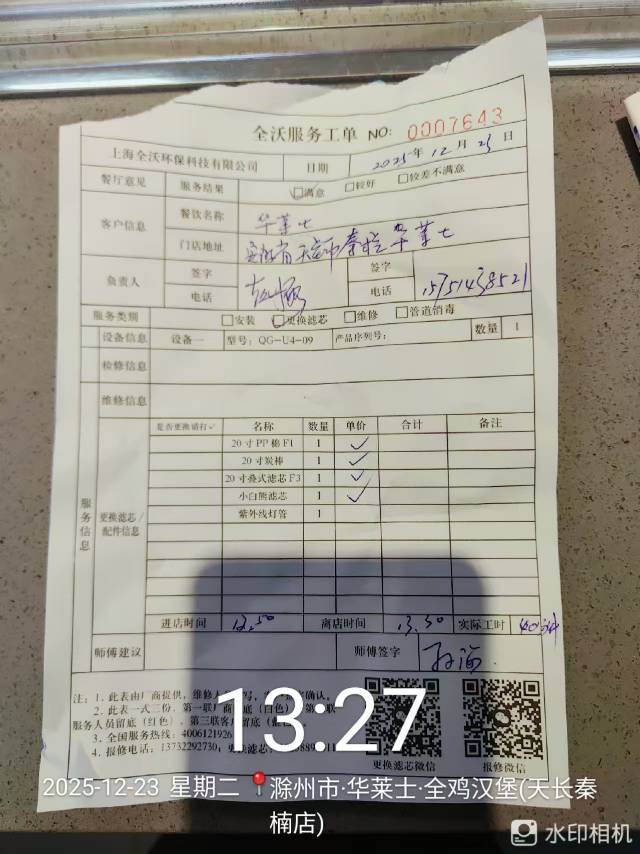 全沃服务工单 NO: 0007643
上海全沃环保科技有限公司 日期 2025年12月23日
餐厅意见 服务结果 □满意 □较好 □较差不满意
客户信息 餐饮名称 华莱士
门店地址 安徽省天长市秦栏华莱士
负责人 签字 签字
电话 电话 15751438521
服务类别 □安装 □更换滤芯 □维修 □管道消毒
设备信息 设备一 型号: QG-U4-09 产品序列号: 数量 1
检修信息
维修信息
服务信息
更换滤芯/配件信息
是否更换请打✓ 名称 数量 单价 合计 备注
20寸PP棉F1 1 ✓
20寸炭棒 1 ✓
20寸叠式滤芯F3 1 ✓
小白熊滤芯 1 ✓
紫外线灯管 1
进店时间 12.50 离店时间 13.30 实际工时 40分钟
师傅建议 师傅签字
注: 1、此表由厂商提供, 维修人
2、此表一式三份, 第一联厂商
服务人员留底(红色)、第三联客
3、全国服务热线: 4006121926
4、报修电话: 13732292730; 更换滤芯
更换滤芯微信 报修微信
13:27
2025-12-23 星期二 滁州市·华莱士·全鸡汉堡(天长秦
楠店)
水印相机